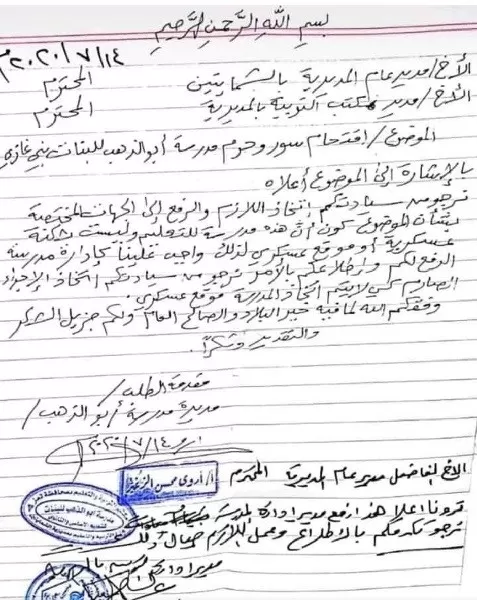 بسم الله الرحمن الرحيم
٢٠٢٠/٧/١٤م
الأخ/ مدير عام المديرية بالشمايتين المحترم
الأخ/ مدير مكتب التربية بالمديرية المحترم
الموضوع/ اقتحام سور وحرم مدرسة أبو الذهب للبنات بني غازي
بالإشارة إلى الموضوع أعلاه
نرجو من سيادتكم اتخاذ اللازم والرفع إلى الجهات المختصة
بشأن الموضوع كون أن هذه مدرسة للتعليم وليست ثكنة
عسكرية أو موقع عسكري لذلك واجب علينا كإدارة مدرسة
الرفع لكم وإطلاعكم بالأمر نرجو من سيادتكم اتخاذ الإجراء
الصارم كي لا يتم اتخاذ المدرسة موقع عسكري.
وفقكم الله لما فيه خير البلاد والصالح العام ولكم جزيل الشكر
والتقدير وشكراً.
مقدمة الطلب/
مديرة مدرسة/ أبو الذهب/
٢٠٢٠/٧/١٤
أ/ أروى محسن
الأخ الفاضل مدير عام المديرية المحترم
أعلا هذا رفع مدير إدارة المدرسة
نرجو تكرمكم بالاطلاع وعمل اللازم حيال ذلك
مدير إدارة